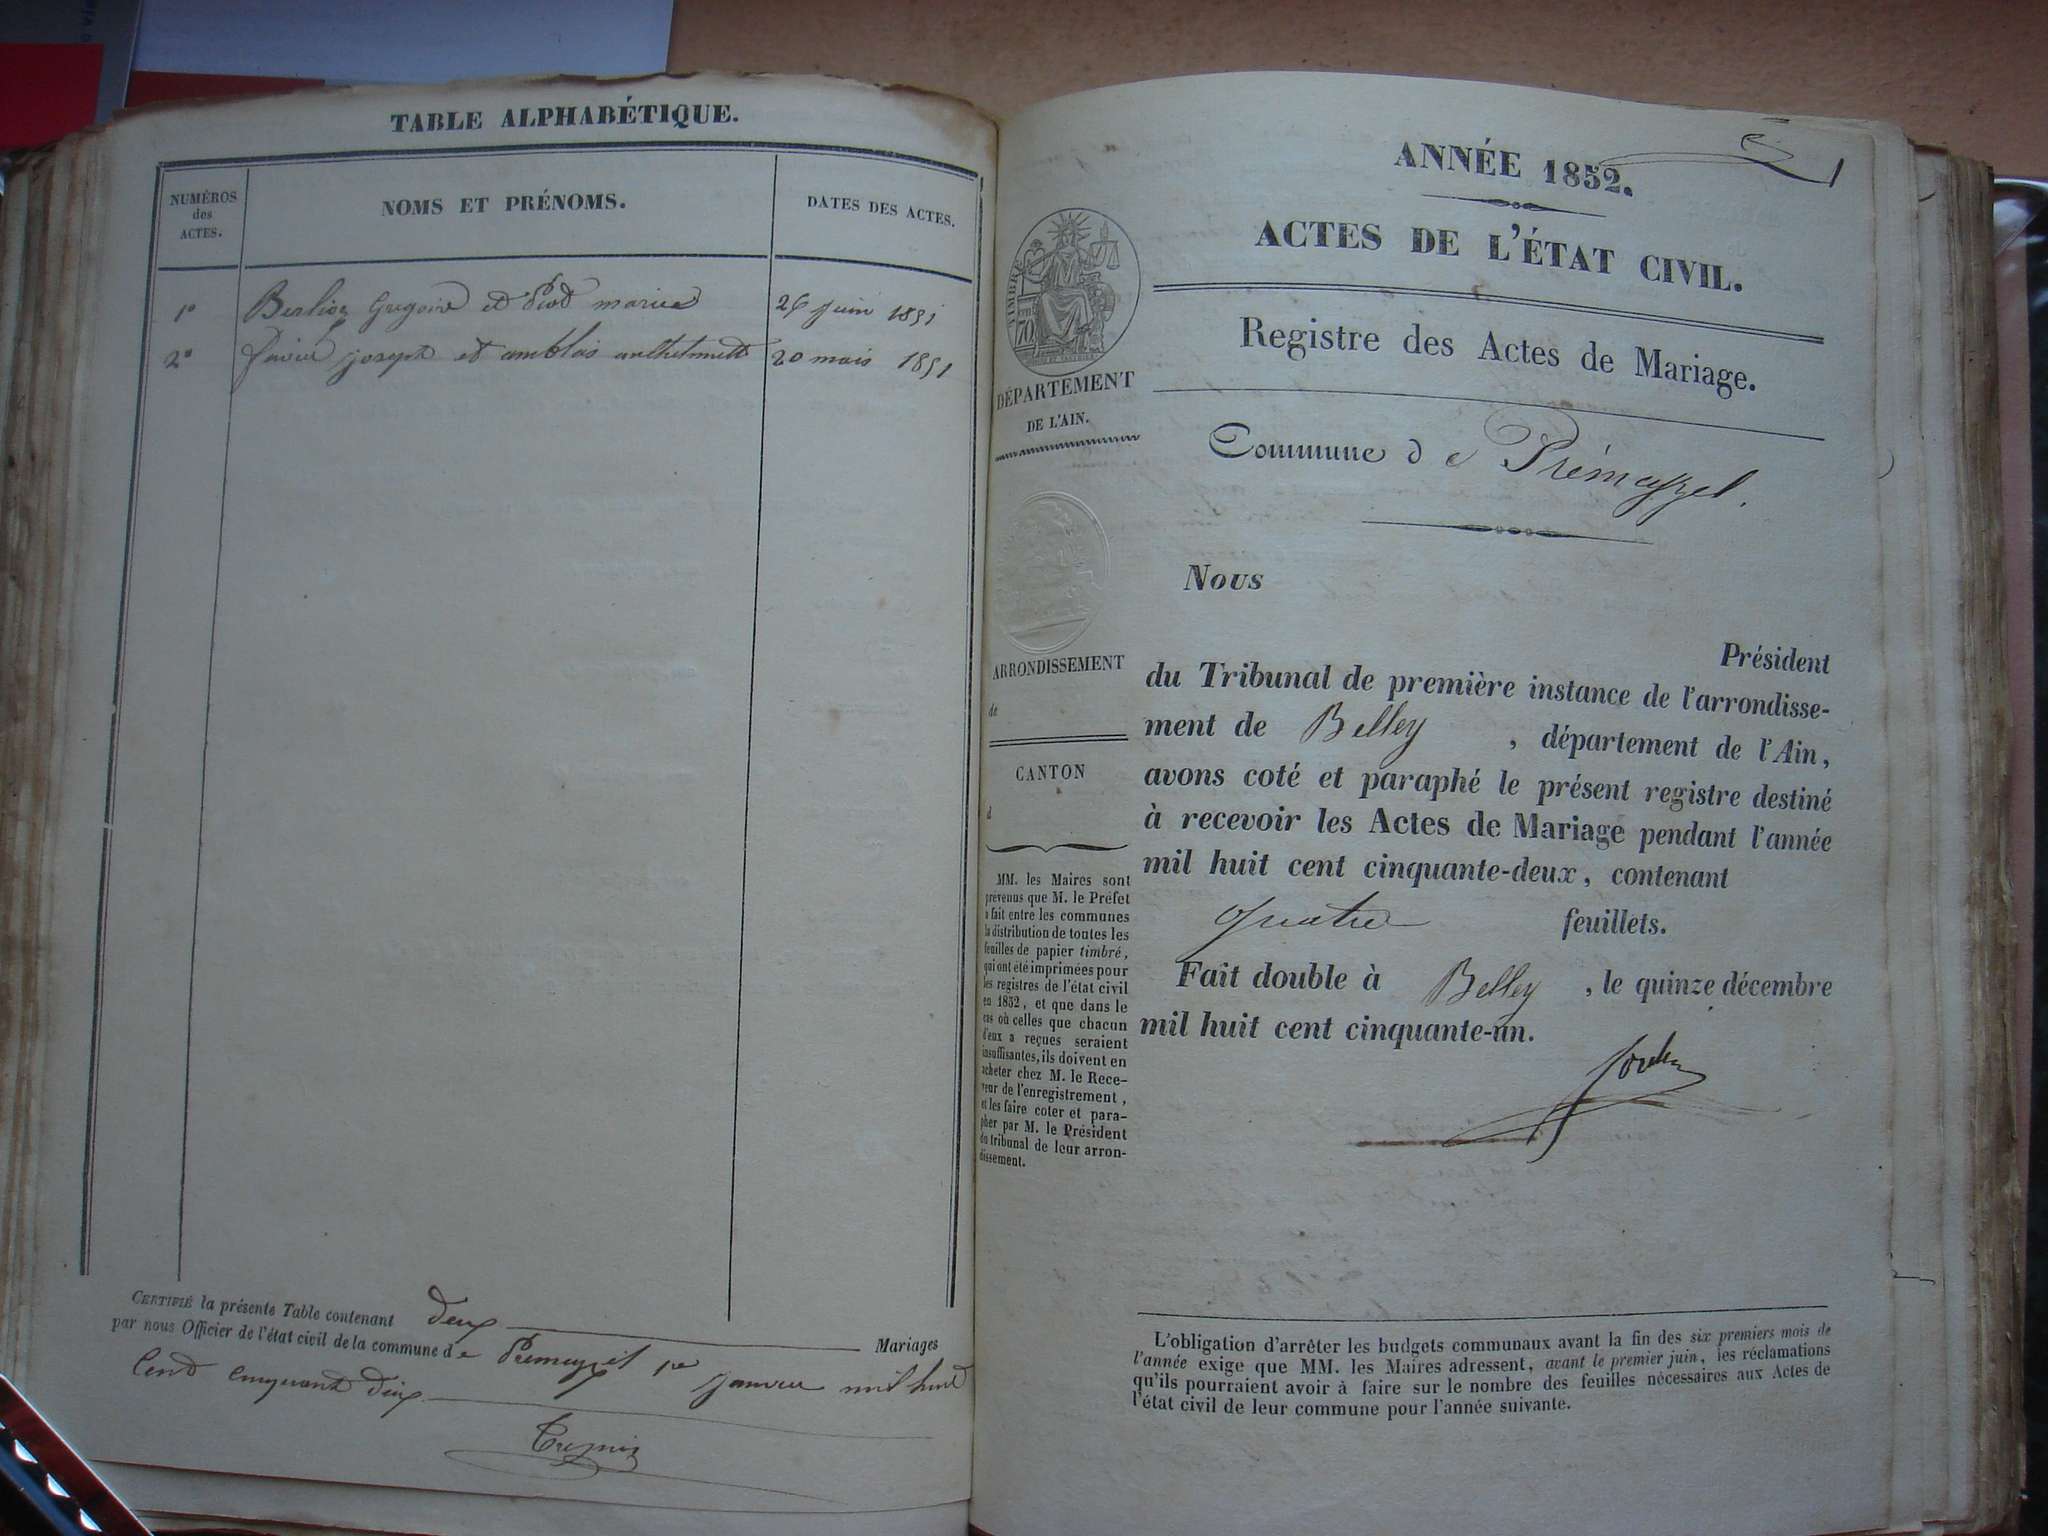 TABLE ALPHABÉTIQUE.
NUMÉROS
des
ACTES.
NOMS ET PRÉNOMS.
DATES DES ACTES.
1° Berlioz Gregoire et Piod marie 26 juin 1851
2° favier joseph et amblais anthelmette 20 mais 1851
CERTIFIÉ la présente Table contenant deux Mariages
par nous Officier de l'état civil de la commune de Premeyzel 1er janvier mil huit
Cent cinquant deux
ANNÉE 1852.
1
ACTES DE L'ÉTAT CIVIL.
Registre des Actes de Mariage.
Commune de Prémeyzel.
TIMBRE
70
DÉPARTEMENT
DE L'AIN.
ARRONDISSEMENT
de
CANTON
d
MM. les Maires sont
prévenus que M. le Préfet
a fait entre les communes
la distribution de toutes les
feuilles de papier timbré,
qui ont été imprimées pour
les registres de l'état civil
en 1852, et que dans le
cas où celles que chacun
d'eux a reçues seraient
insuffisantes, ils doivent en
acheter chez M. le Rece-
veur de l'enregistrement,
et les faire coter et para-
pher par M. le Président
du tribunal de leur arron-
dissement.
Nous
Président
du Tribunal de première instance de l'arrondisse-
ment de Belley, département de l'Ain,
avons coté et paraphé le présent registre destiné
à recevoir les Actes de Mariage pendant l'année
mil huit cent cinquante-deux, contenant
quatre feuillets.
Fait double à Belley, le quinze décembre
mil huit cent cinquante-un.
L'obligation d'arrêter les budgets communaux avant la fin des six premiers mois de
l'année exige que MM. les Maires adressent, avant le premier juin, les réclamations
qu'ils pourraient avoir à faire sur le nombre des feuilles nécessaires aux Actes de
l'état civil de leur commune pour l'année suivante.